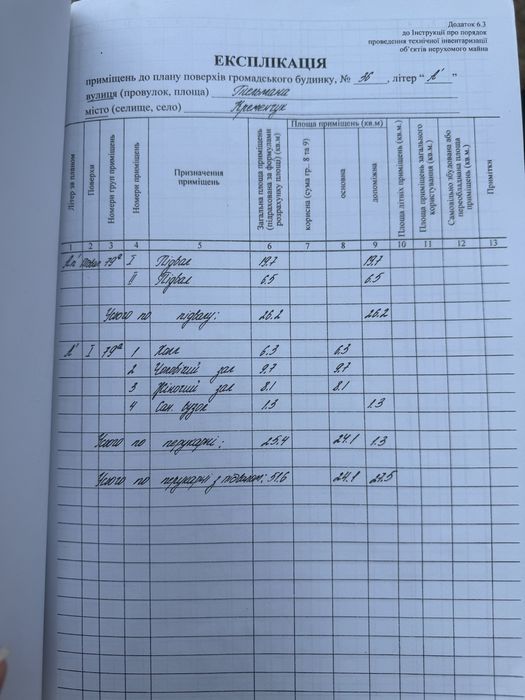 Додаток 6.3
до Інструкції про порядок
проведення технічної інвентаризації
об'єктів нерухомого майна
ЕКСПЛІКАЦІЯ
приміщень до плану поверхів громадського будинку, № 36, літер “ А' ”
вулиця (провулок, площа) Тельмана
місто (селище, село) Кременчук
Літер за планом
Поверхи
Номери груп приміщень
Номери приміщень
Призначення приміщень
Загальна площа приміщень (підрахована за формулами розрахунку площі) (кв.м)
Площа приміщень (кв.м)
корисна (сума гр. 8 та 9)
основна
допоміжна
Площа літніх приміщень (кв.м.)
Площа приміщень загального користування (кв.м.)
Самовільно збудована або переобладнана площа приміщень (кв.м.)
Примітки
1 2 3 4 5 6 7 8 9 10 11 12 13
79а I Підвал 19.7 19.7
II Підвал 6.5 6.5
Усього по підвалу: 26.2 26.2
А' I 79а 1 Хол 6.3 6.3
2 Чоловічий зал 9.7 9.7
3 Жіночий зал 8.1 8.1
4 Сан. вузол 1.3 1.3
Усього по перукарні: 25.4 24.1 1.3
Усього по перукарні з підвалом: 51.6 24.1 27.5